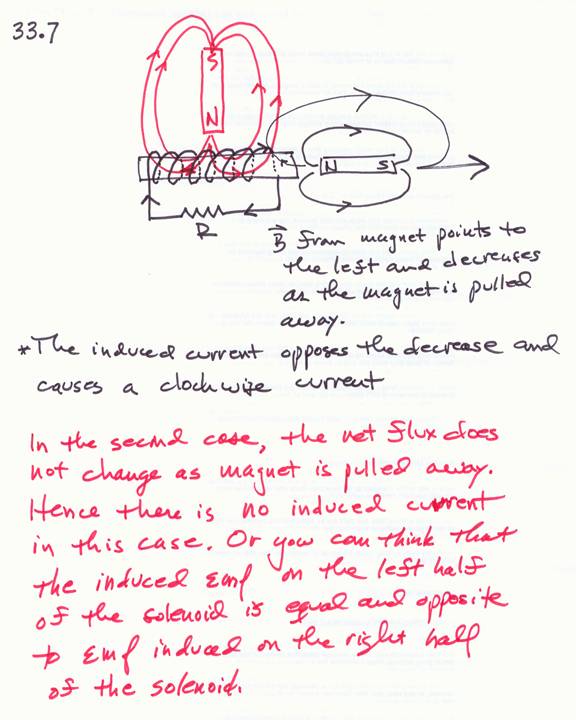 33.7
S
N
N S
R
B⃗ from magnet points to
the left and decreases
as the magnet is pulled
away.
*The induced current opposes the decrease and
causes a clockwise current
In the second case, the net flux does
not change as magnet is pulled away.
Hence there is no induced current
in this case. Or you can think that
the induced Emf on the left half
of the solenoid is equal and opposite
to Emf induced on the right half
of the solenoid.